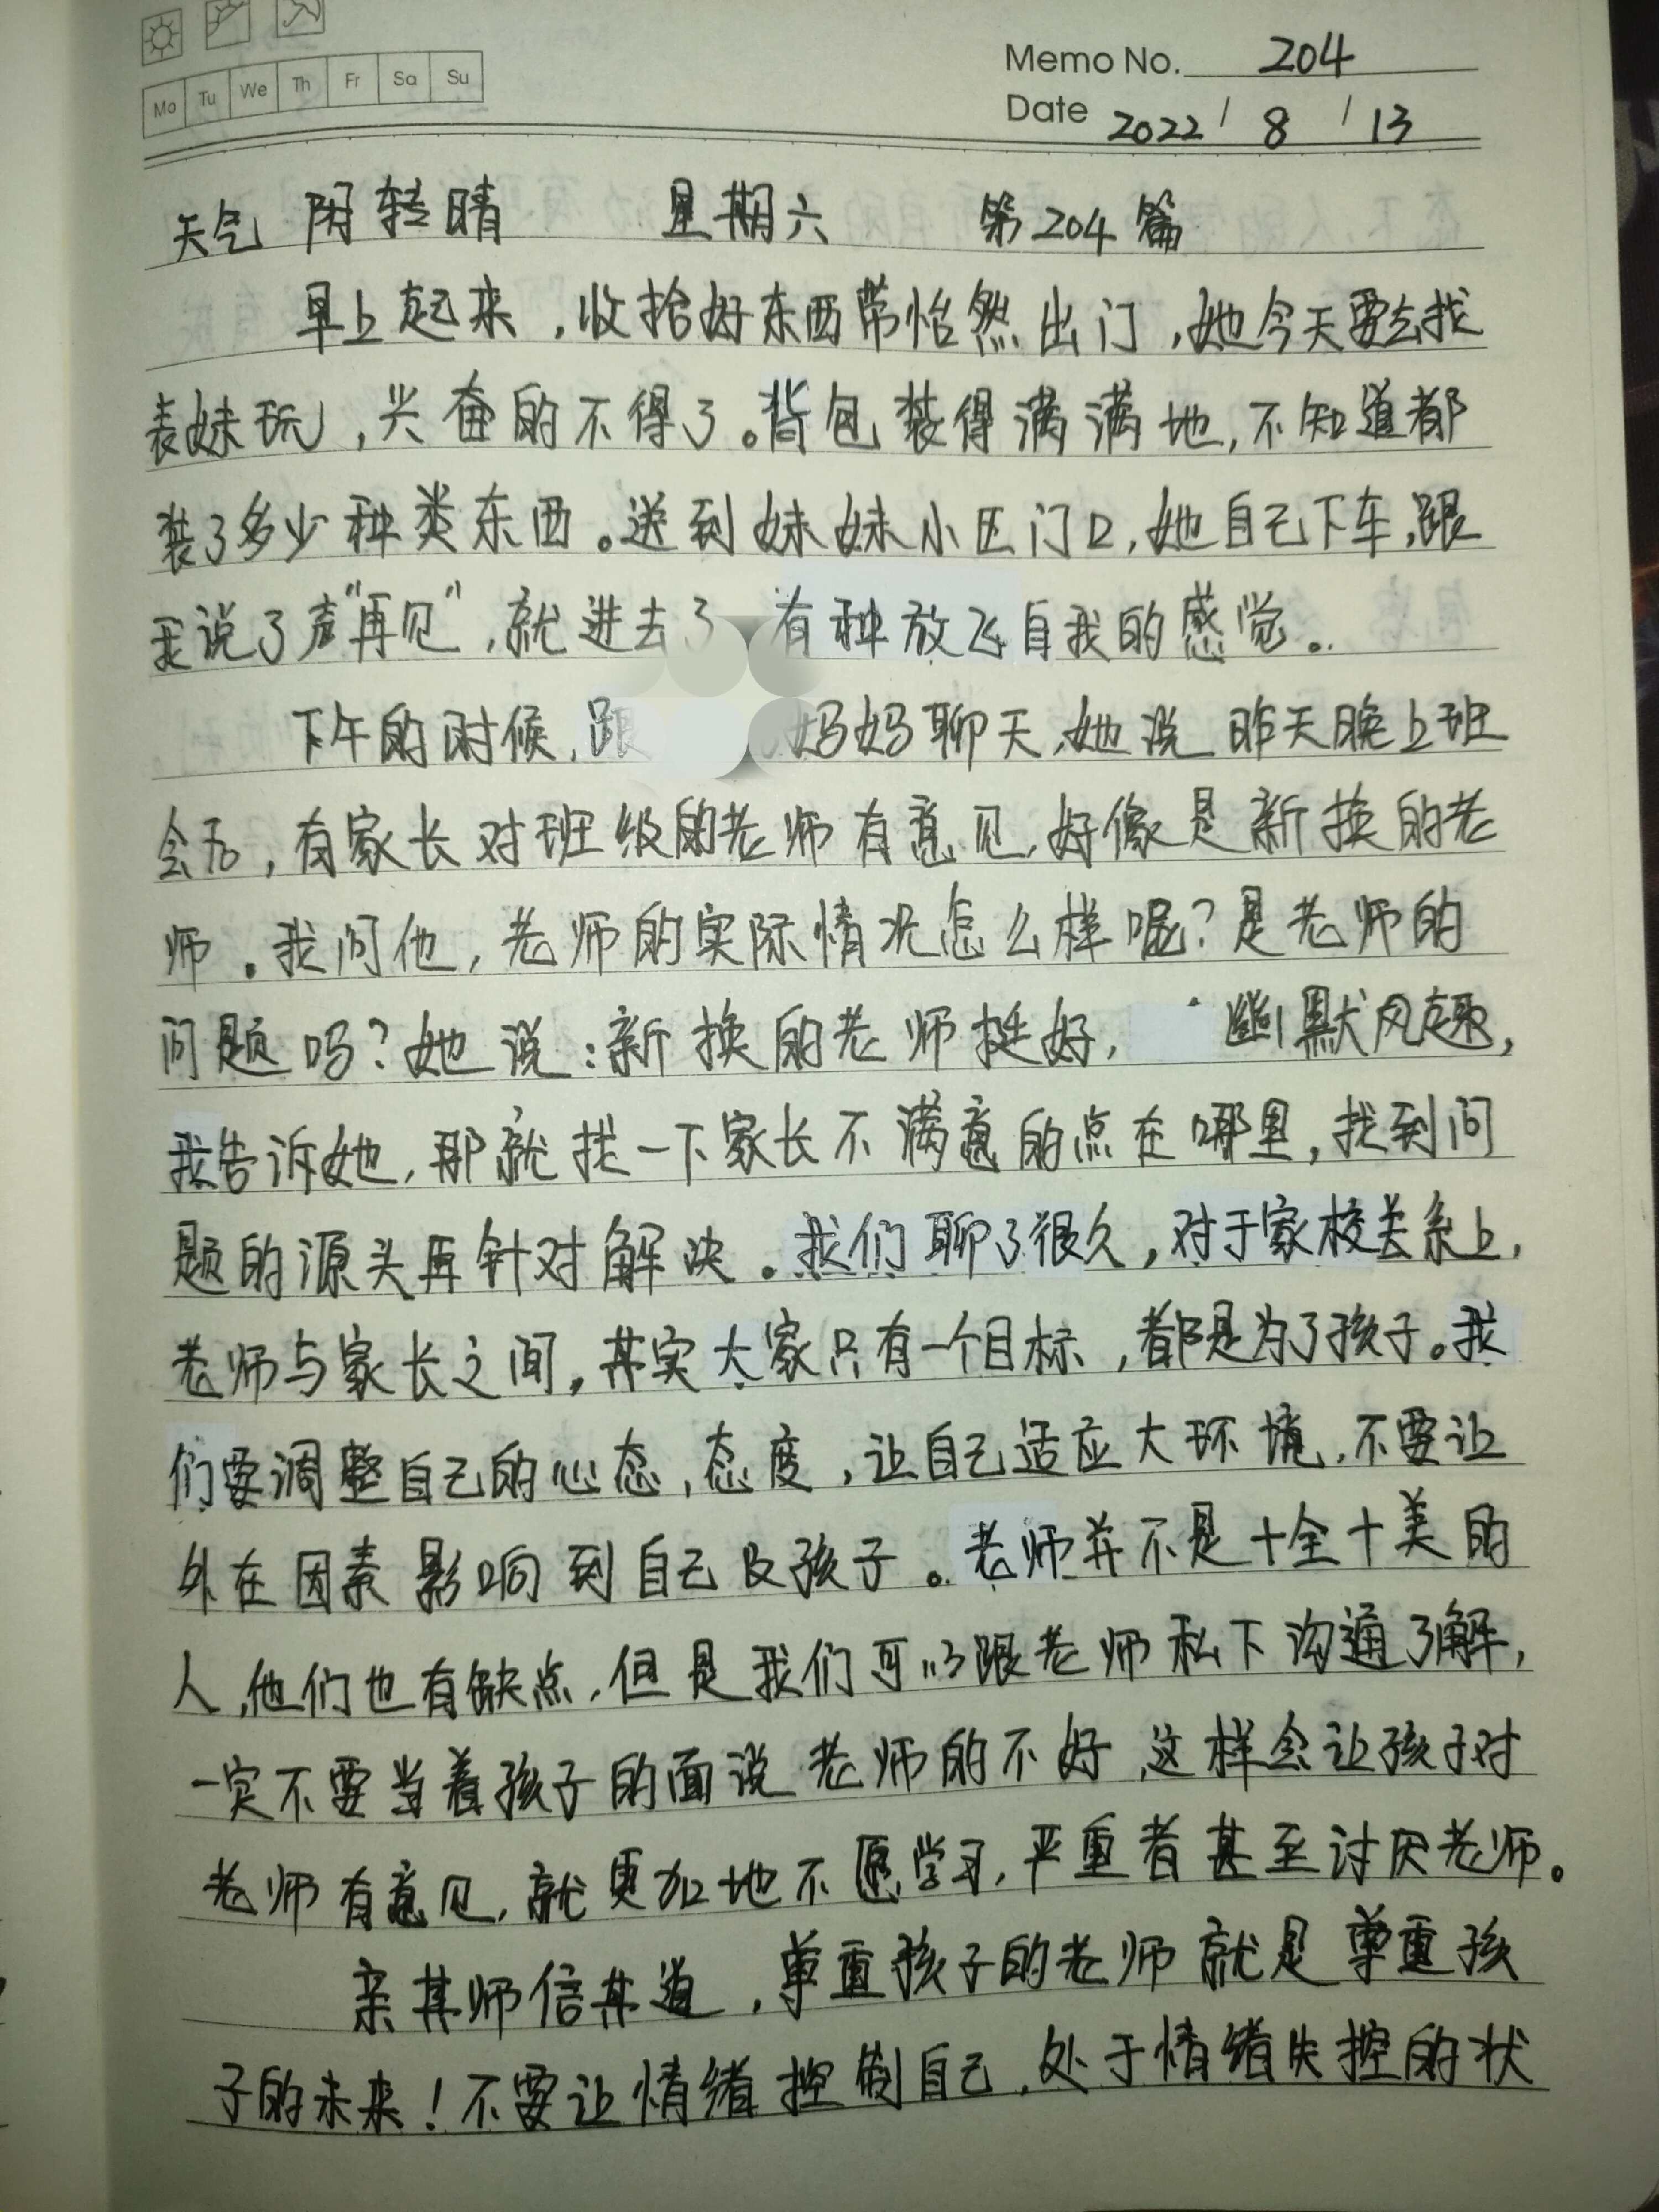 Memo No. 204
Mo Tu We Th Fr Sa Su
Date 2022 / 8 / 13
天气 阴转晴 星期六 第204篇
早上起来,收拾好东西带怡然出门,她今天要去找
表妹玩,兴奋的不得了。背包装得满满地,不知道都
装了多少种类东西。送到妹妹小区门口,她自己下车,跟
我说了声“再见”,就进去了 有种放飞自我的感觉。
下午的时候,跟 妈妈聊天,她说昨天晚上班
会后,有家长对班级的老师有意见,好像是新换的老
师。我问他,老师的实际情况怎么样呢?是老师的
问题吗?她说:新换的老师挺好, 幽默风趣,
我告诉她,那就找一下家长不满意的点在哪里,找到问
题的源头再针对解决。我们聊了很久,对于家校关系上,
老师与家长之间,其实大家只有一个目标,都是为了孩子。我
们要调整自己的心态,态度,让自己适应大环境,不要让
外在因素影响到自己及孩子。老师并不是十全十美的
人,他们也有缺点,但是我们可以跟老师私下沟通了解,
一定不要当着孩子的面说老师的不好,这样会让孩子对
老师有意见,就更加地不愿学习,严重者甚至讨厌老师。
亲其师信其道,尊重孩子的老师就是尊重孩
子的未来!不要让情绪控制自己,处于情绪失控的状